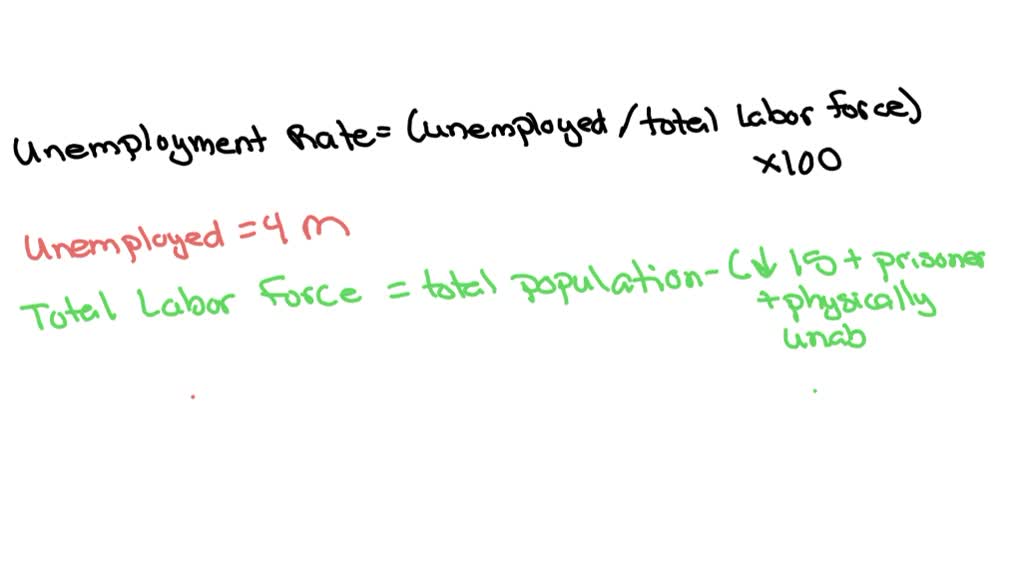 Unemployment Rate= (unemployed / total Labor force)
x100
Unemployed = 4 m
Total Labor Force = total population- (↓ 15 + prisoner
+ physically
unab